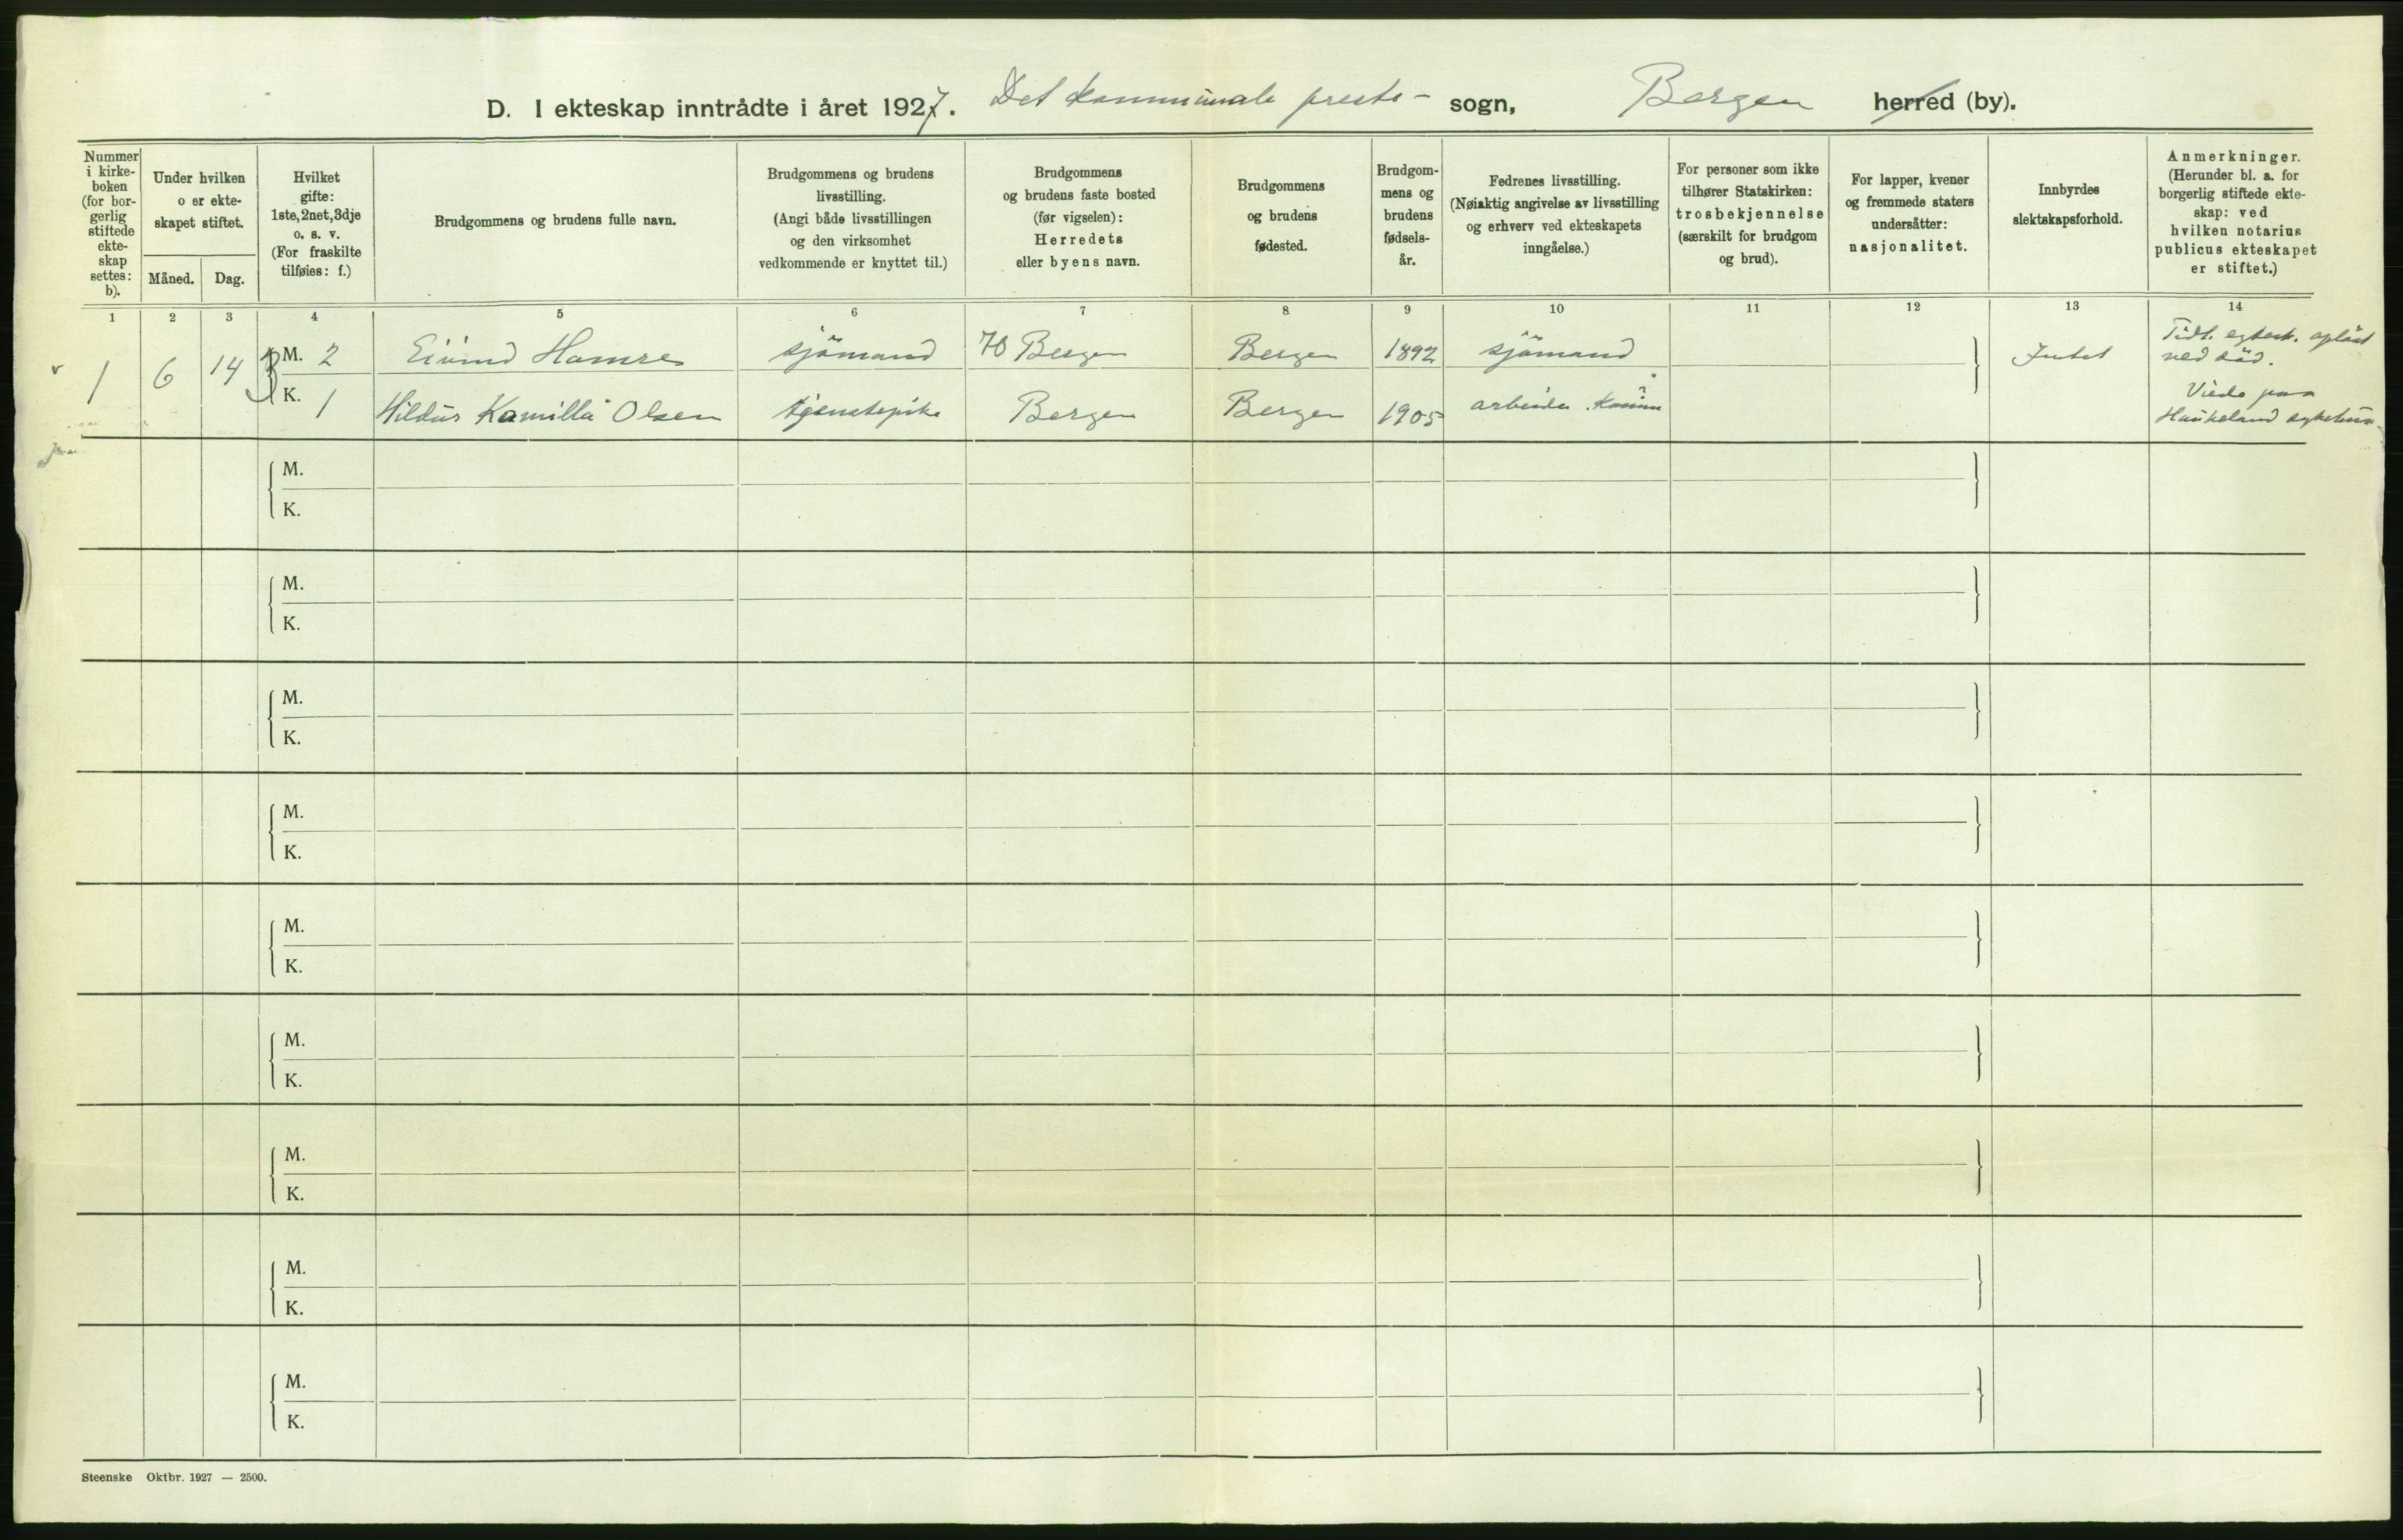 D. I ekteskap inntrådte i året 1927. Det kommunale preste- sogn, Bergen herred (by).
Nummer i kirke- boken (for bor- gerlig stiftede ekte- skap settes: b).
Under hvilken o er ekte- skapet stiftet.
Måned. Dag.
Hvilket gifte: 1ste, 2net, 3dje o. s. v. (For fraskilte tilføies: f.)
Brudgommens og brudens fulle navn.
Brudgommens og brudens livsstilling. (Angi både livsstillingen og den virksomhet vedkommende er knyttet til.)
Brudgommens og brudens faste bosted (før vigselen): Herredets eller byens navn.
Brudgommens og brudens fødested.
Brudgom- mens og brudens fødsels- år.
Fedrenes livsstilling. (Nøiaktig angivelse av livsstilling og erhverv ved ekteskapets inngåelse.)
For personer som ikke tilhører Statskirken: trosbekjennelse (særskilt for brudgom og brud).
For lapper, kvener og fremmede staters undersåtter: nasjonalitet.
Innbyrdes slektskapsforhold.
Anmerkninger. (Herunder bl. a. for borgerlig stiftede ekte- skap: ved hvilken notarius publicus ekteskapet er stiftet.)
1 2 3 4 5 6 7 8 9 10 11 12 13 14
1 6 14 M. 2 Eivind Hamre sjömand 70 Bergen Bergen 1892 sjömand Intet Tidl. egtesk. oplöst
ved död.
K. 1 Hildur Kamilla Olsen tjenestepike Bergen Bergen 1905 arbeider Viede paa
Haukeland sykehus
M.
K.
M.
K.
M.
K.
M.
K.
M.
K.
M.
K.
M.
K.
M.
K.
M.
K.
Steenske Oktbr. 1927 — 2500.